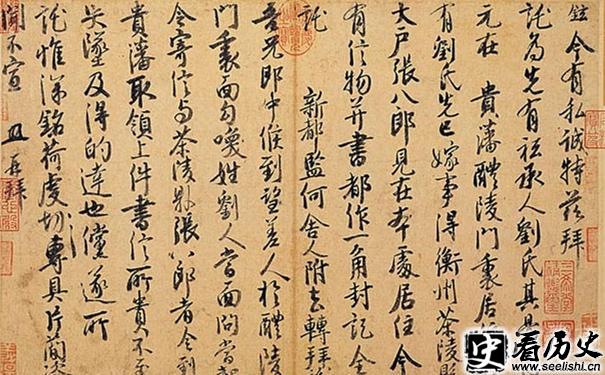 鉉今有私誠特茲拜
託為先有祗承人劉氏其
元在 貴藩醴陵門裏居
有劉氏先已嫁事得衡州茶陵縣
大戶張八郎見在本處居住今
有信物并書都作一角封記全
託 新都監何舍人附去轉拜
吾兄郎中候到望差人於醴陵
門裏面勾喚姓劉人當面問當
令寄信与茶陵縣張八郎者令到
貴藩取領上件書信所貴不至
失墜及得的達也儻遂所
託惟深銘荷虔切專具片簡咨
聞不宣 鉉再拜
看历史
www.seelishi.cn